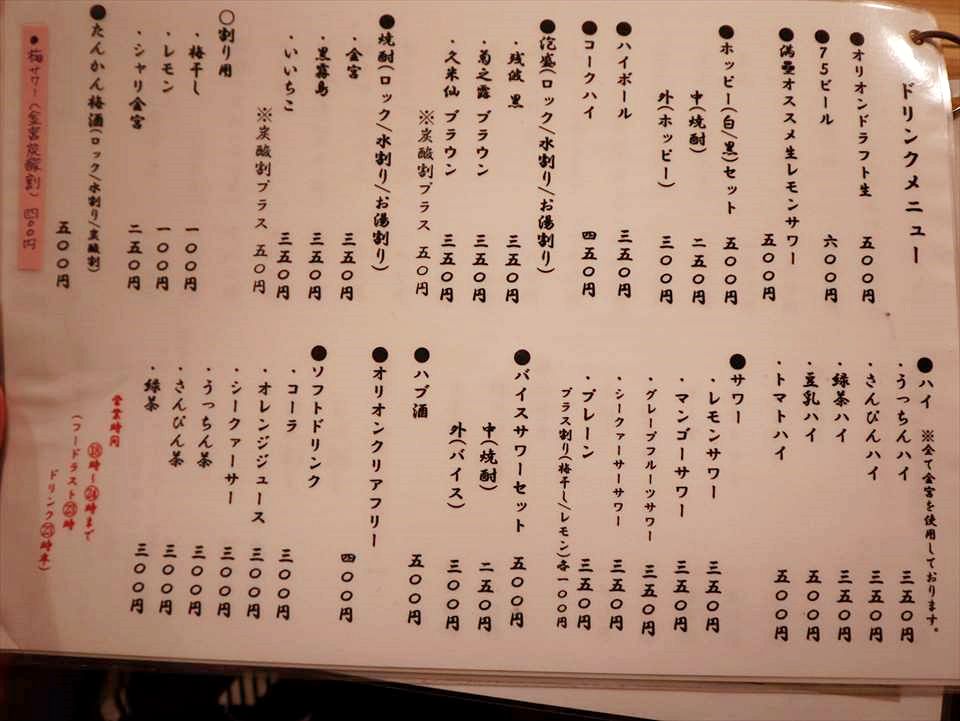 ドリンクメニュー
●オリオンドラフト生 五〇〇円
●75ビール 六〇〇円
●満壘オススメ生レモンサワー 五〇〇円
●ホッピー(白/黒)セット 五〇〇円
中(焼酎) 二五〇円
外(ホッピー) 三〇〇円
●ハイボール 三五〇円
●コークハイ 四五〇円
●泡盛(ロック/水割り/お湯割り)
・残波 黒 三五〇円
・菊之露 ブラウン 三五〇円
・久米仙 ブラウン 三五〇円
※炭酸割プラス 五〇円
●焼酎(ロック/水割り/お湯割り)
・金宮 三五〇円
・黒霧島 三五〇円
・いいちこ 三五〇円
※炭酸割プラス 五〇円
〇割り用
・梅干し 一〇〇円
・レモン 一〇〇円
・シャリ金宮 二五〇円
●たんかん梅酒(ロック/水割り/炭酸割) 五〇〇円
●梅サワー(金宮炭酸割) 四〇〇円
●ハイ ※全て金宮を使用しております。
・うっちんハイ 三五〇円
・さんぴんハイ 三五〇円
・緑茶ハイ 三五〇円
・豆乳ハイ 五〇〇円
・トマトハイ 五〇〇円
●サワー
・レモンサワー 三五〇円
・マンゴーサワー 三五〇円
・グレープフルーツサワー 三五〇円
・シークァーサーサワー 三五〇円
・プレーン 三五〇円
プラス割り(梅干し/レモン)各一〇〇円
●バイスサワーセット 五〇〇円
中(焼酎) 二五〇円
外(バイス) 三〇〇円
●ハブ酒 五〇〇円
●オリオンクリアフリー 四〇〇円
●ソフトドリンク
・コーラ 三〇〇円
・オレンジジュース 三〇〇円
・シークァーサー 三〇〇円
・うっちん茶 三〇〇円
・さんぴん茶 三〇〇円
・緑茶 三〇〇円
営業時間
⑱時~㉔時まで
(フードラスト㉓時
ドリンク㉓時半)